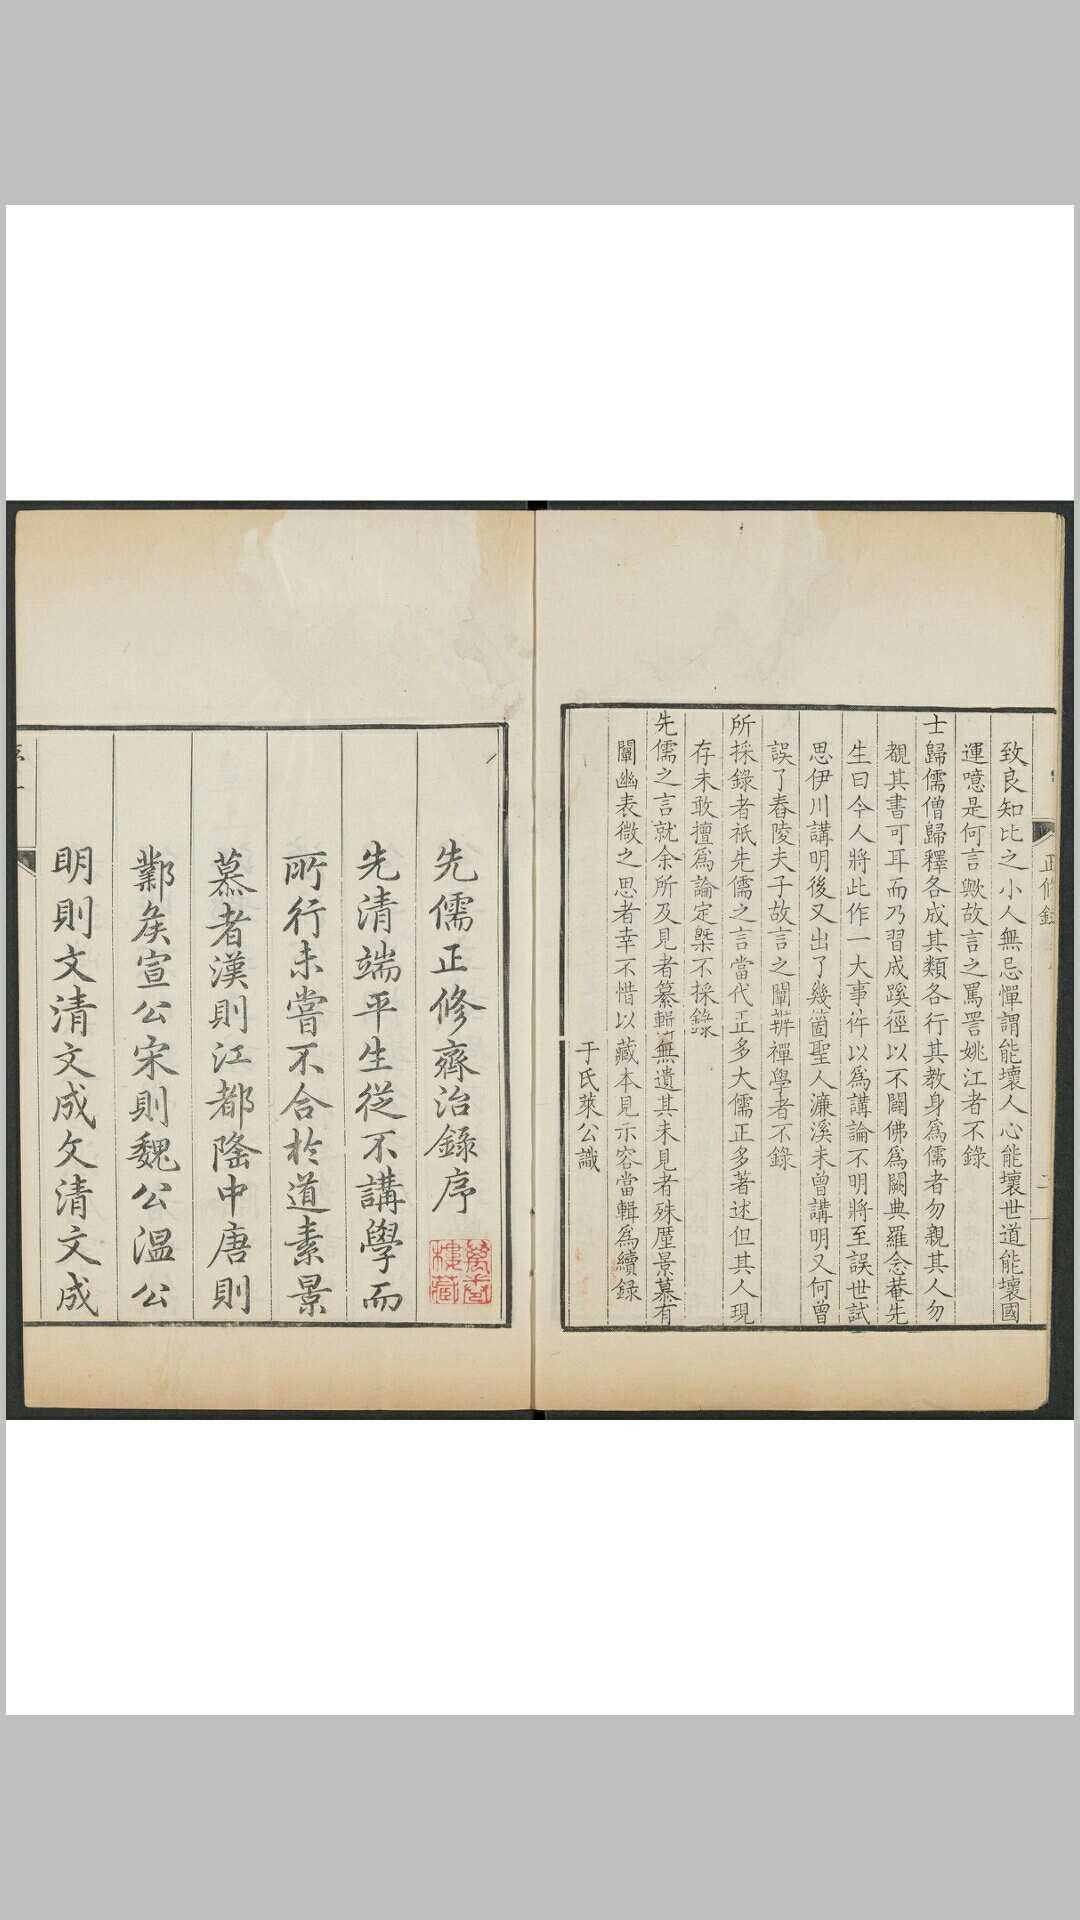 正修錄
二
致良知比之小人無忌憚謂能壞人心能壞世道能壞國
運噫是何言歟故言之罵詈姚江者不錄
士歸儒僧歸釋各成其類各行其教身爲儒者勿親其人勿
覩其書可耳而乃習成蹊徑以不闢佛爲闕典羅念菴先
生曰今人將此作一大事件以爲講論不明將至誤世試
思伊川講明後又出了幾箇聖人濂溪未曾講明又何曾
誤了舂陵夫子故言之闢辨禪學者不錄
所採錄者祇先儒之言當代正多大儒正多著述但其人現
存未敢擅爲論定槩不採錄
先儒之言就余所及見者纂輯無遺其未見者殊壓景慕有
闡幽表微之思者幸不惜以藏本見示容當輯爲續錄
于氏萊公識
先儒正修齊治錄序
萬書樓藏
先清端平生從不講學而
所行未嘗不合於道素景
慕者漢則江都隆中唐則
鄴矦宣公宋則魏公溫公
明則文清文成文清文成
序
一